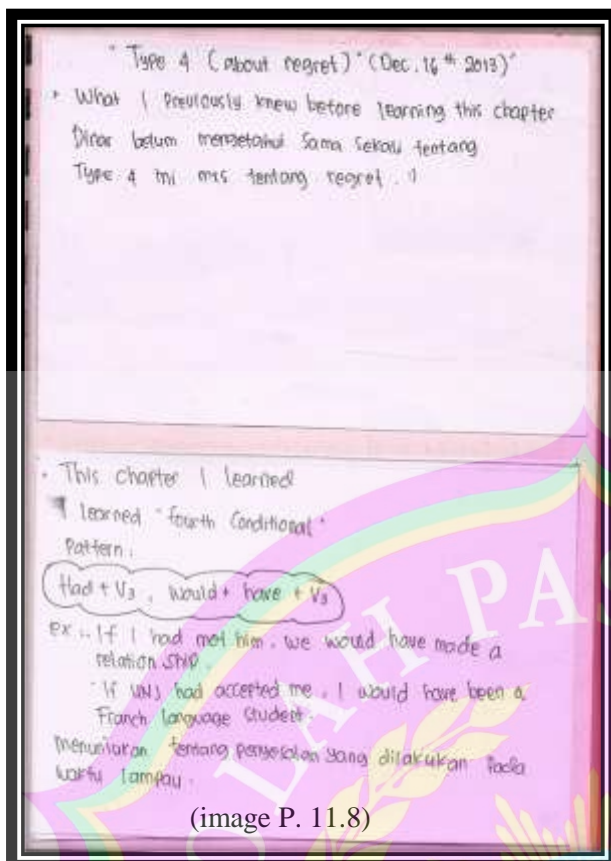 " Type 4 (about regret) " (Dec, 16 th 2013)"
What I Previously knew before learning this chapter
Dinar belum mengetahui sama sekali tentang
Type 4 ini mis tentang regret. !
This chapter I learned
I learned "fourth Conditional"
Pattern.
Had + V3, would + have + V3
ex.. If I had met him, we would have made a
relation ship.
"If UNJ had accepted me, I would have been a
Franch language student.
menunjukan tentang penyesalan yang dilakukan Pada
waktu lampau.
(image P. 11.8)
OLAH PAS